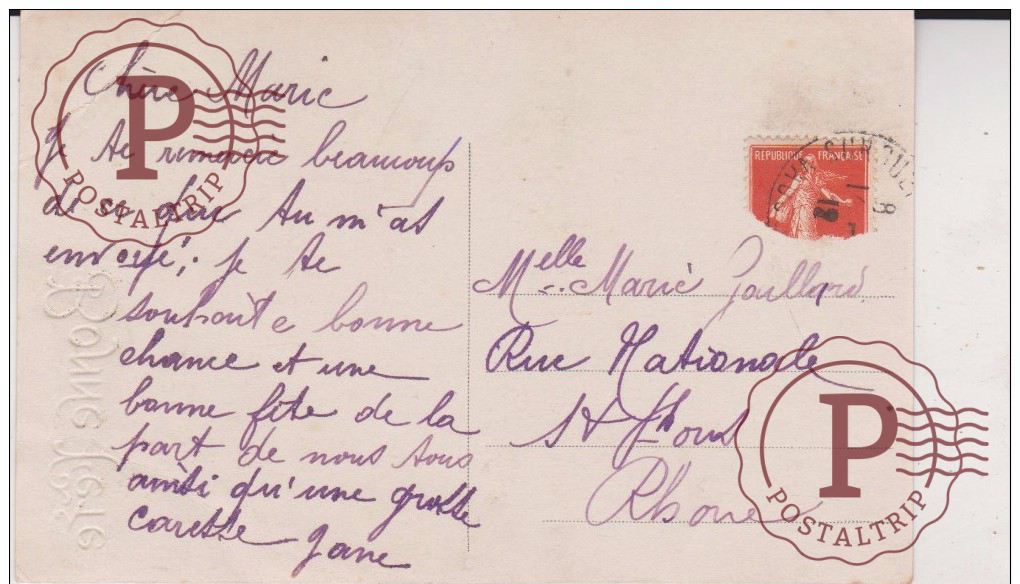 Chère Marie
Je te remercie beaucoup
de ce que tu m'as
envoyé; je te
souhaite bonne
chance et une
bonne fête de la
part de nous tous
ainsi qu'une grosse
caresse Jane
Bonne Fête
REPUBLIQUE FRANÇAISE
Melle Marie Gaillard
Rue Nationale
St
Rhone
P
POSTALTRIP
P
POSTALTRIP